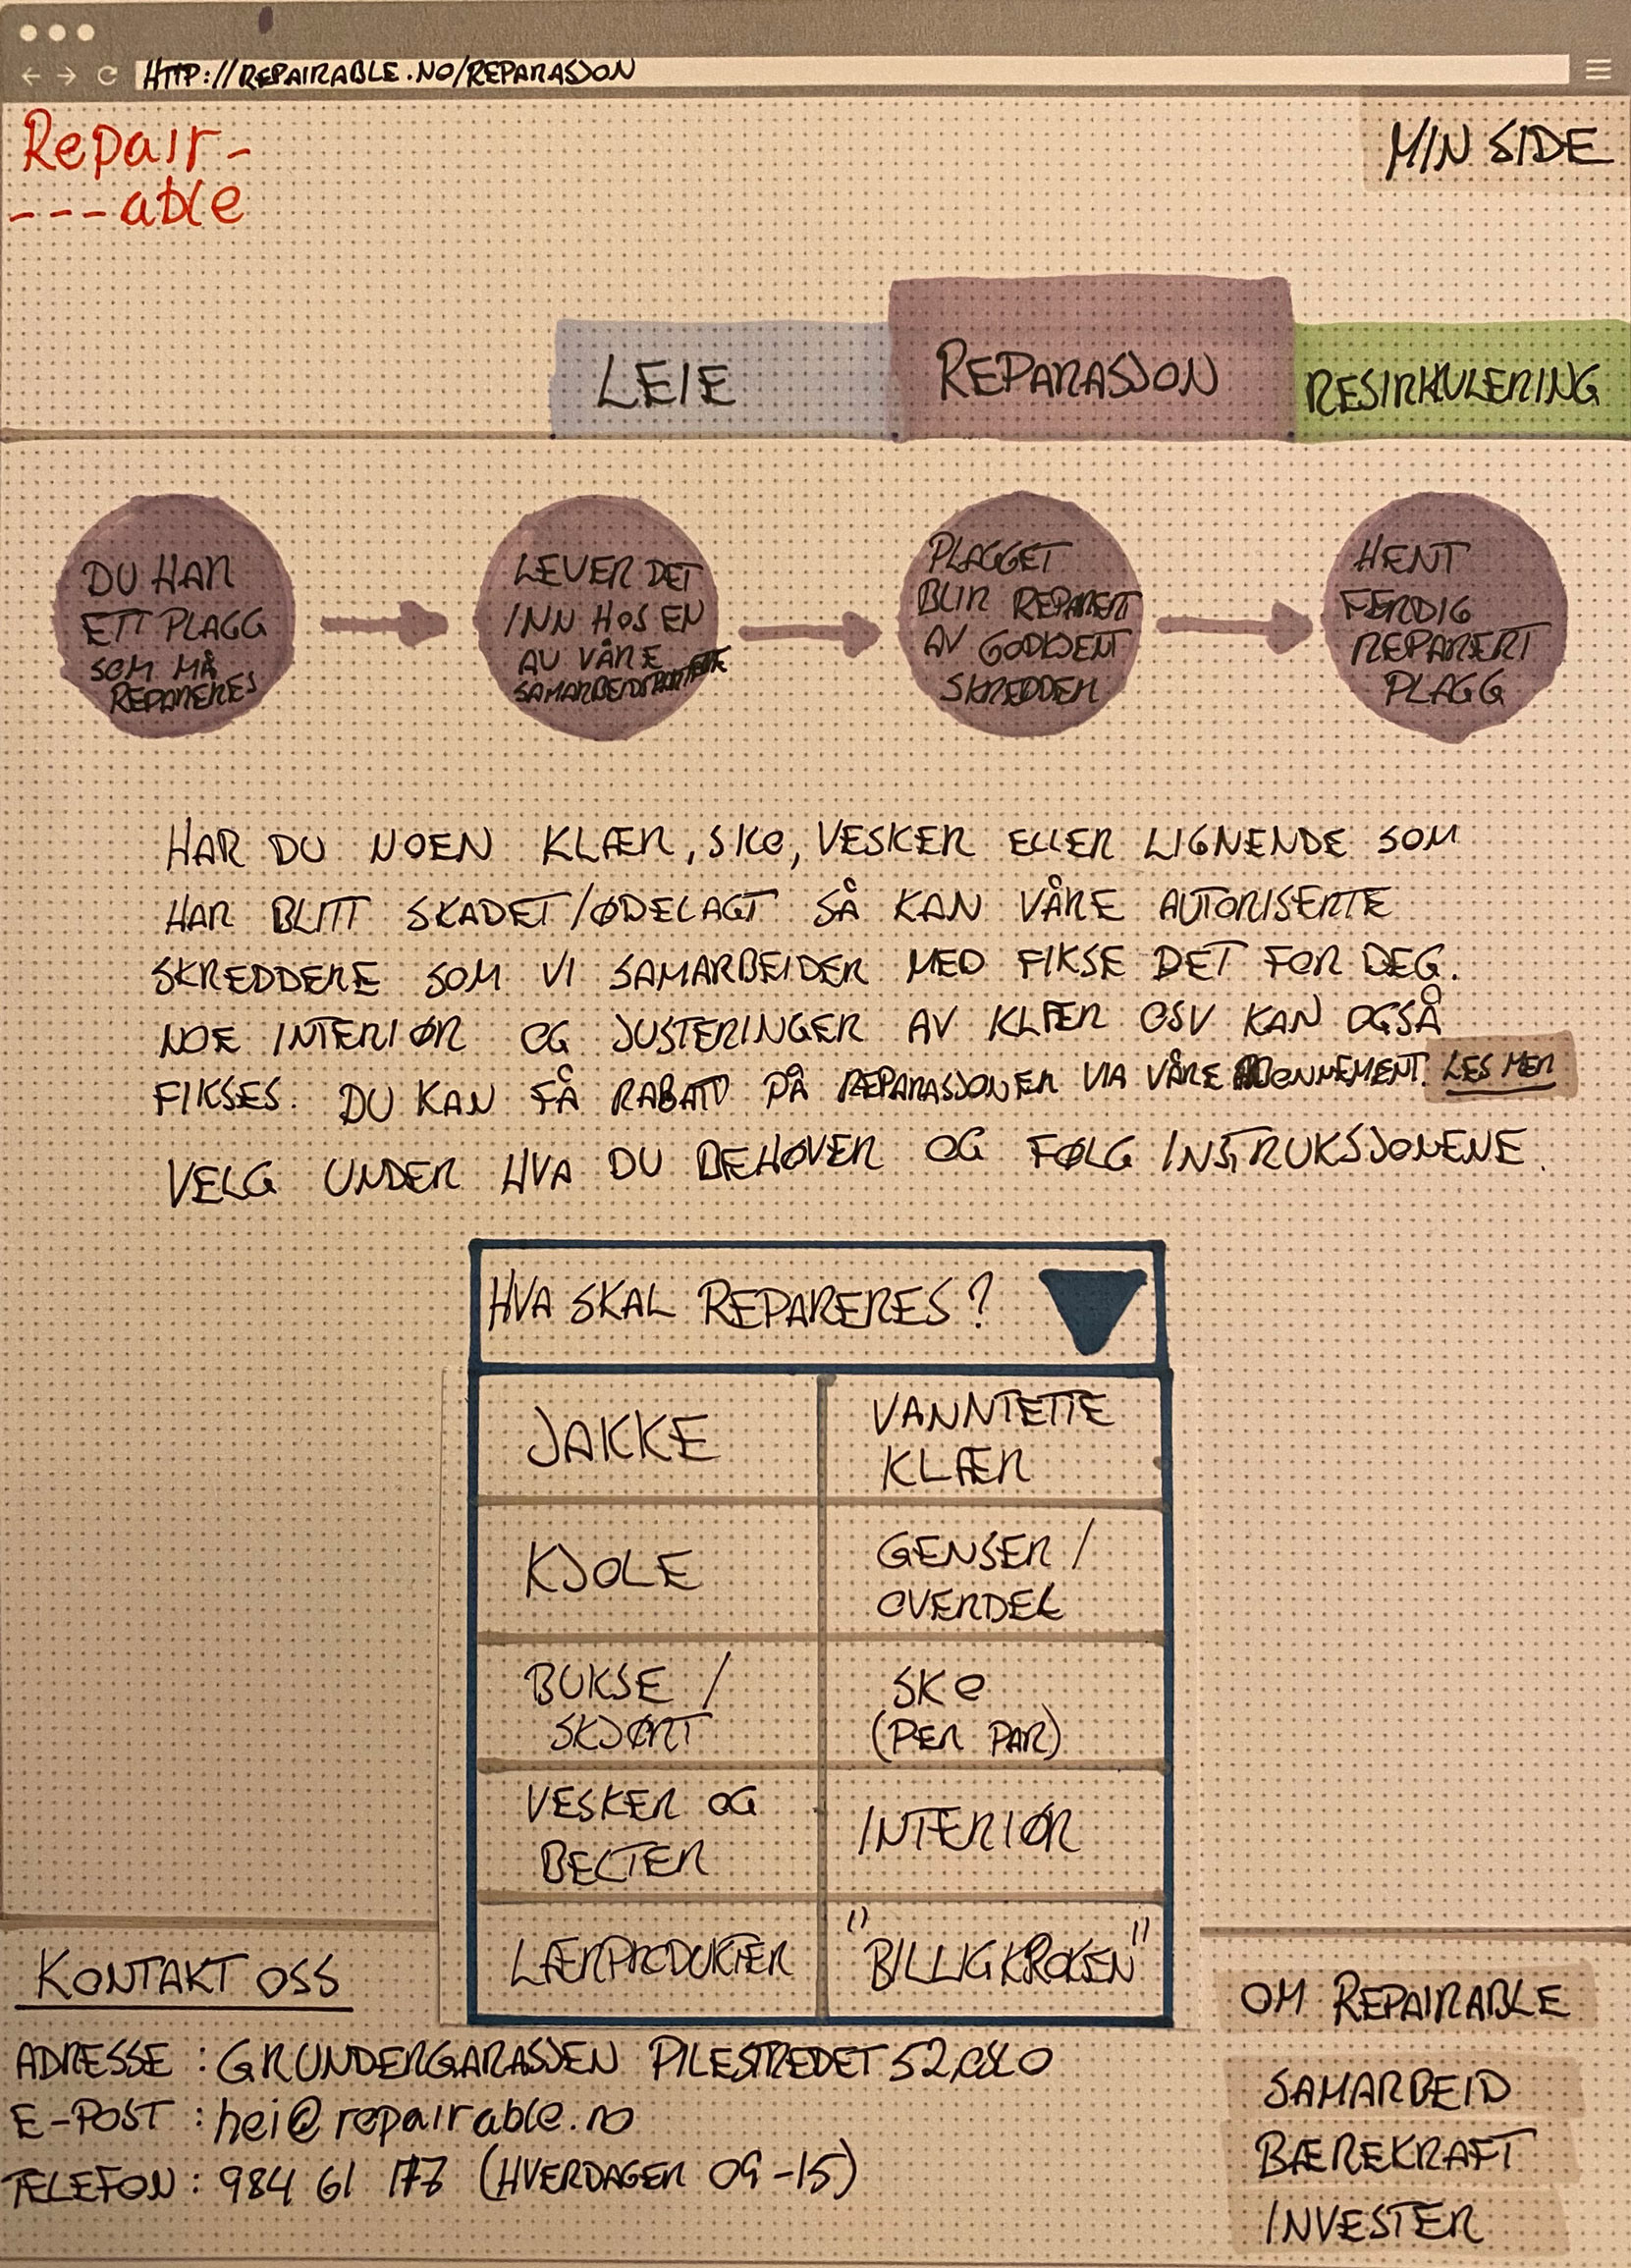 HTTP://REPAIRABLE.NO/REPARASJON
Repair-
---able
MIN SIDE
LEIE
REPARASJON
RESIRKULERING
DU HAR
ETT PLAGG
SOM MÅ
REPARERES
LEVER DET
INN HOS EN
AV VÅRE
PLAGGET
BLIR REPARERT
AV GODKJENT
SKREDDER
HENT
FERDIG
REPARERT
PLAGG
HAR DU NOEN KLÆR, SKO, VESKER ELLER LIGNENDE SOM
HAR BLITT SKADET/ØDELAGT SÅ KAN VÅRE AUTORISERTE
SKREDDERE SOM VI SAMARBEIDER MED FIKSE DET FOR DEG.
NOE INTERIØR OG JUSTERINGER AV KLÆR OSV KAN OGSÅ
FIKSES. DU KAN FÅ RABATT PÅ REPARASJONER VIA VÅRE ABONNEMENT. LES MER
VELG UNDER HVA DU BEHØVER OG FØLG INSTRUKSJONENE.
HVA SKAL REPARERES?
JAKKE
VANNTETTE
KLÆR
KJOLE
GENSER /
OVERDEL
BUKSE /
SKJØRT
SKO
(PER PAR)
VESKER OG
BELTER
INTERIØR
LÆRPRODUKTER
"BILLIGKROKEN"
KONTAKT OSS
ADRESSE : GRUNDERGARASJEN PILESTREDET 52, OSLO
E-POST : hei@repairable.no
TELEFON : 984 61 177 (HVERDAGER 09-15)
OM REPAIRABLE
SAMARBEID
BÆREKRAFT
INVESTER